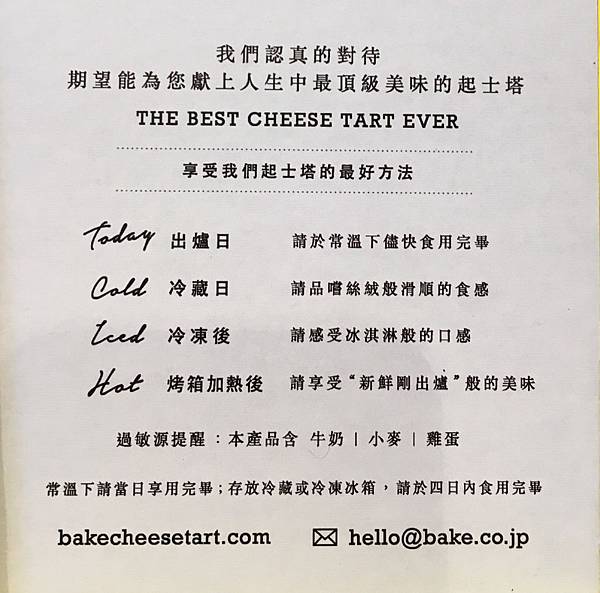 我們認真的對待
期望能為您獻上人生中最頂級美味的起士塔
THE BEST CHEESE TART EVER
享受我們起士塔的最好方法
Today 出爐日 請於常溫下儘快食用完畢
Cold 冷藏日 請品嚐絲絨般滑順的食感
Iced 冷凍後 請感受冰淇淋般的口感
Hot 烤箱加熱後 請享受“新鮮剛出爐”般的美味
過敏源提醒：本產品含 牛奶 | 小麥 | 雞蛋
常溫下請當日享用完畢；存放冷藏或冷凍冰箱，請於四日內食用完畢
bakecheesetart.com hello@bake.co.jp